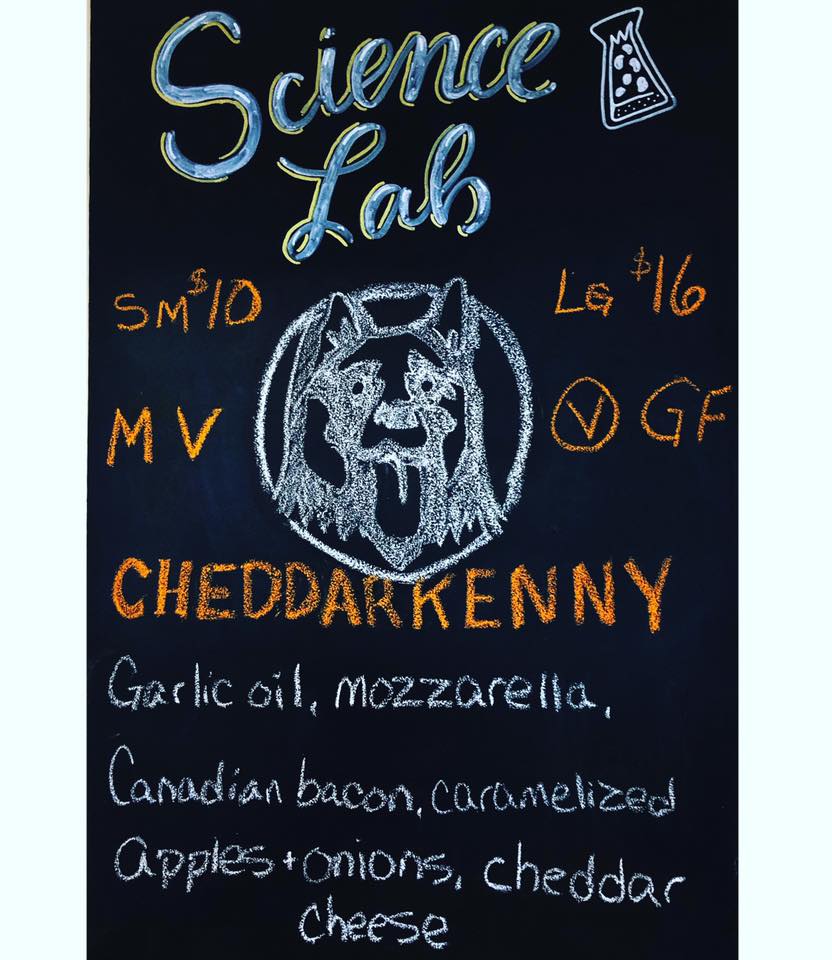 Science
Lab
SM $10
LG $16
MV
V GF
CHEDDARKENNY
Garlic oil, mozzarella,
Canadian bacon, caramelized
apples + onions, cheddar
cheese